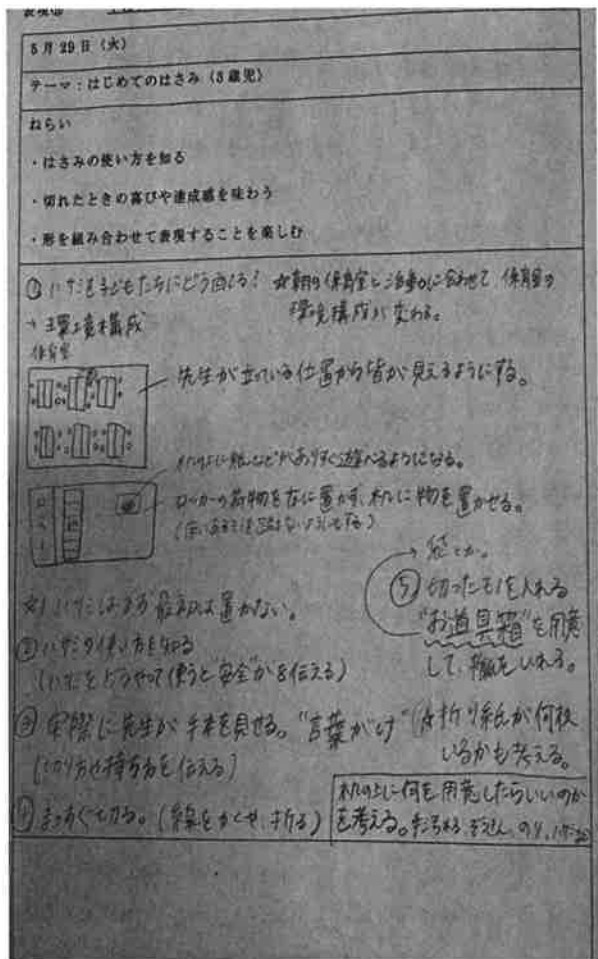 5月29日（火）
テーマ：はじめてのはさみ（3歳児）
ねらい
・はさみの使い方を知る
・切れたときの喜びや達成感を味わう
・形を組み合わせて表現することを楽しむ
① ハサミを子どもたちにどう配る？
☆朝の保育室と活動に合わせて 保育室の
環境構成が変わる。
→ 環境構成
保育室
先生が立っている位置から皆が見えるようにする。
机の上に紙などがありすぐ遊べるようになる。
ロッカーの荷物を床に置かず、机に物を置かせる。
☆ハサミは 最初は置かない。
② ハサミの使い方を知る
（ハサミをどうやって使うと"安全"かを伝える）
③ 実際に先生が手本を見せる。"言葉がけ"
（切り方や持ち方を伝える）
④ まっすぐ切る。（線をかくや、折る）
→ 袋とか。
⑤ 切ったモノを入れる
"お道具箱"を用意
して、 いれる。
☆折り紙が何枚
いるかも考える。
机の上に何を用意したらいいのか
を考える。 のり、ハサミ